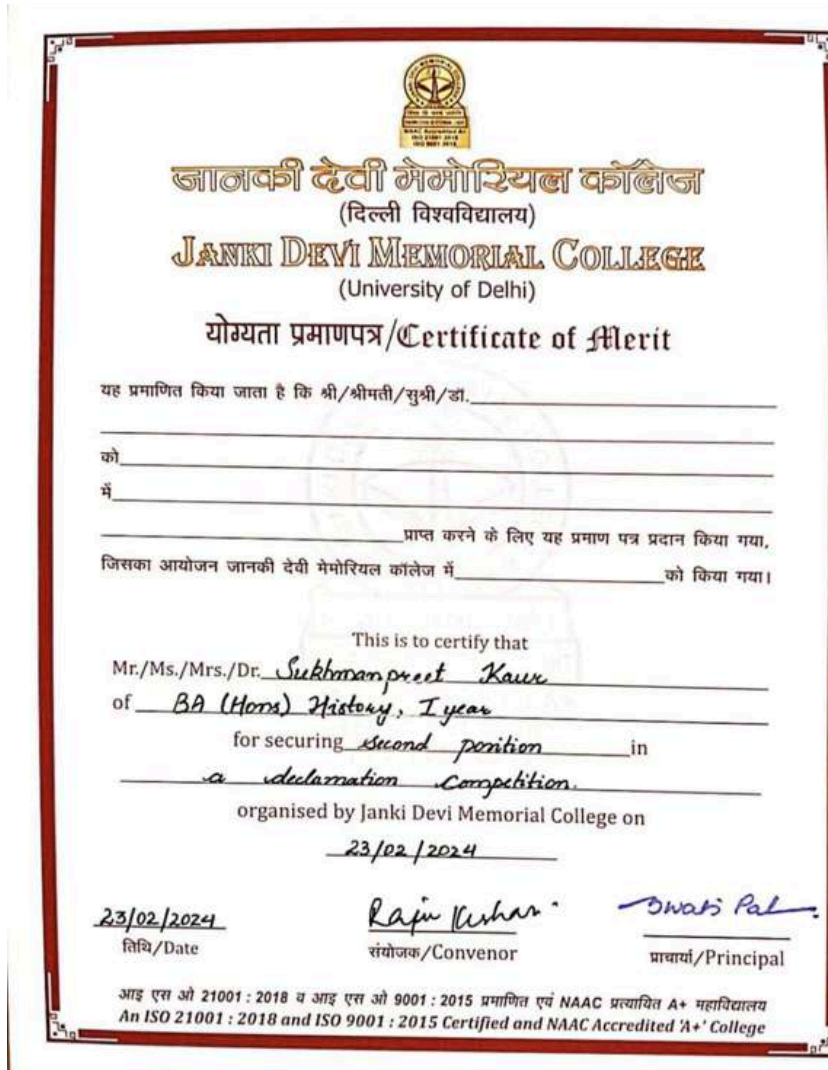 NAAC Accredited A+
ISO 21001:2018
ISO 9001:2015
जानकी देवी मेमोरियल कॉलेज
(दिल्ली विश्वविद्यालय)
JANKI DEVI MEMORIAL COLLEGE
(University of Delhi)
योग्यता प्रमाणपत्र/Certificate of Merit
यह प्रमाणित किया जाता है कि श्री/श्रीमती/सुश्री/डॉ.
को
में
प्राप्त करने के लिए यह प्रमाण पत्र प्रदान किया गया,
जिसका आयोजन जानकी देवी मेमोरियल कॉलेज में को किया गया।
This is to certify that
Mr./Ms./Mrs./Dr. Sukhmanpreet Kaur
of BA (Hons) History, I year
for securing second position in
a declamation competition.
organised by Janki Devi Memorial College on
23/02/2024
23/02/2024 Raju Kishan Swati Pal
तिथि/Date संयोजक/Convenor प्राचार्या/Principal
आइ एस ओ 21001 : 2018 व आइ एस ओ 9001 : 2015 प्रमाणित एवं NAAC प्रत्यायित A+ महाविद्यालय
An ISO 21001 : 2018 and ISO 9001 : 2015 Certified and NAAC Accredited 'A+' College